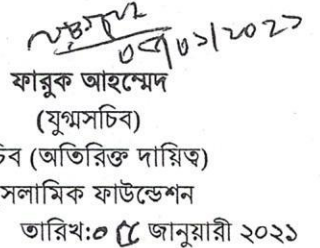 ০৫/০১/২০২১
ফারুক আহম্মেদ
(যুগ্মসচিব)
চিব (অতিরিক্ত দায়িত্ব)
সলামিক ফাউন্ডেশন
তারিখ:০৫ জানুয়ারী ২০২১